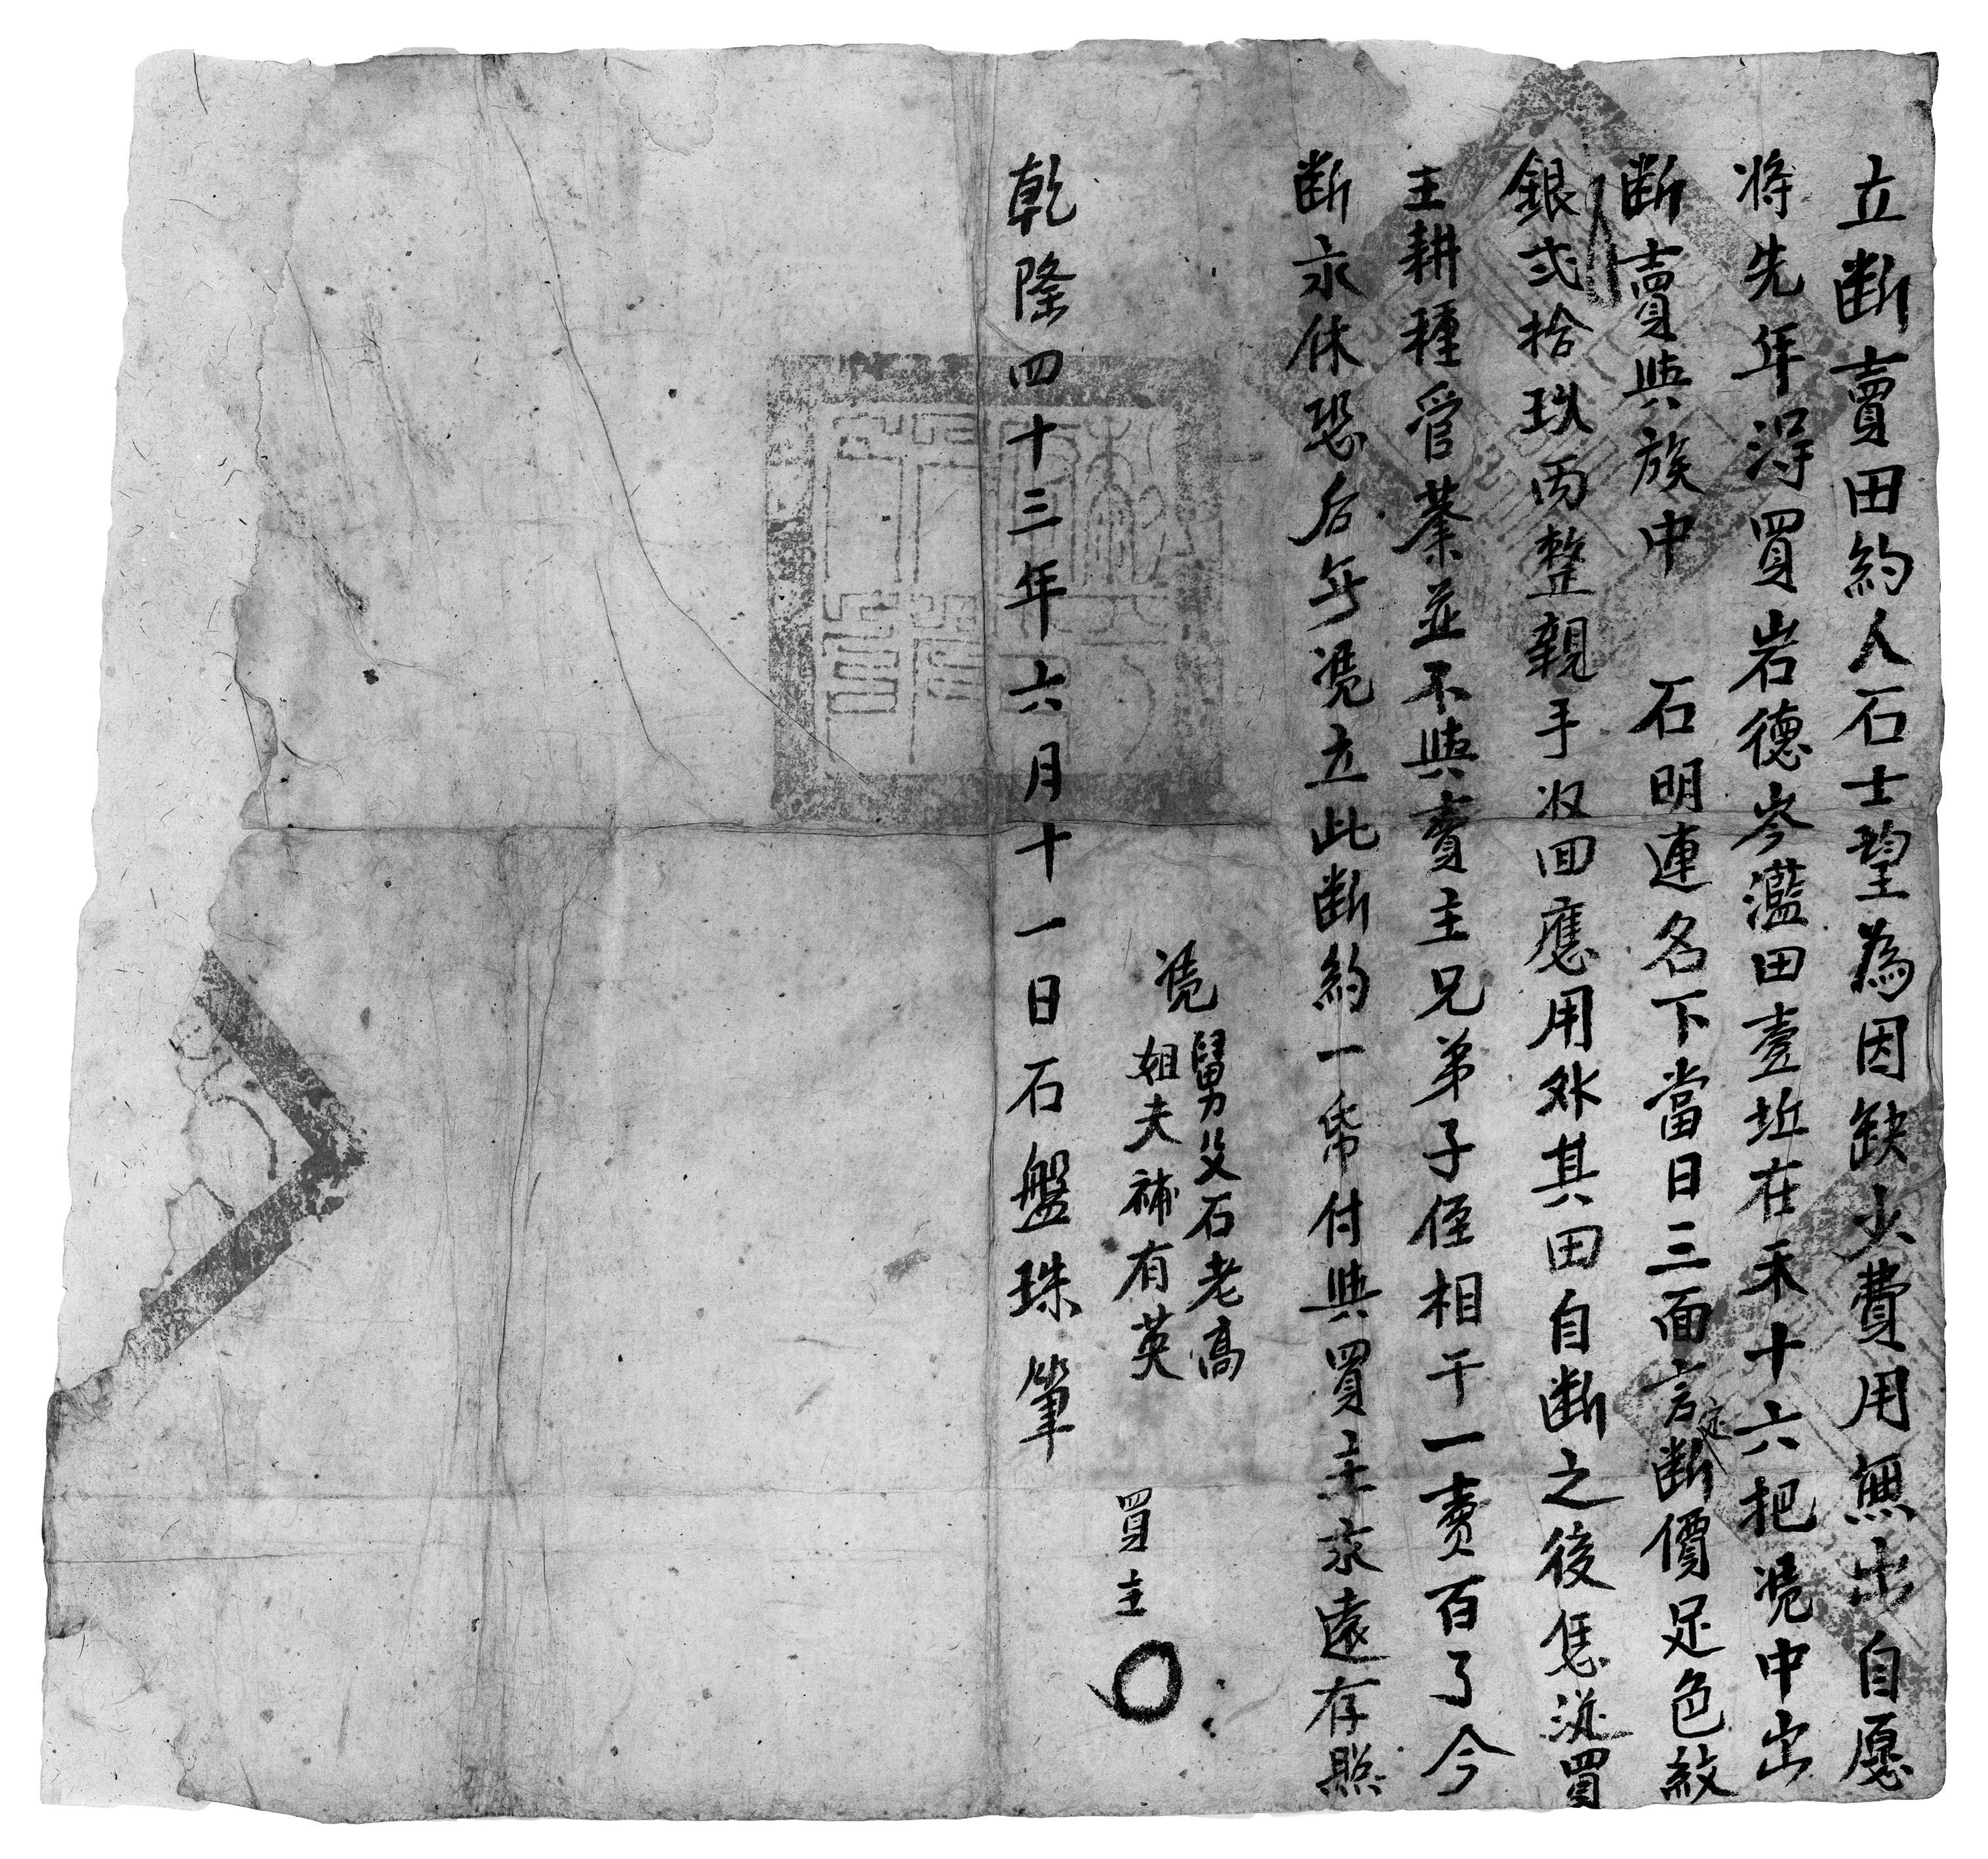 立断賣田約人石士望為因缺少費用無出自愿
将先年淂買岩德岑濫田壹坵在禾十六把凴中出
断賣與族中　石明連名下當日三面言定断價足色紋
銀弍拾玖両整親手収回應用外其田自断之後凭從買
主耕種管業並不與賣主兄弟子侄相干一賣百了今
断永休恐后無凴立此断約一帋付與買主永遠存照
凴
舅父石老高
姐夫補有英
買主
乾隆四十三年六月十一日石盤珠筆